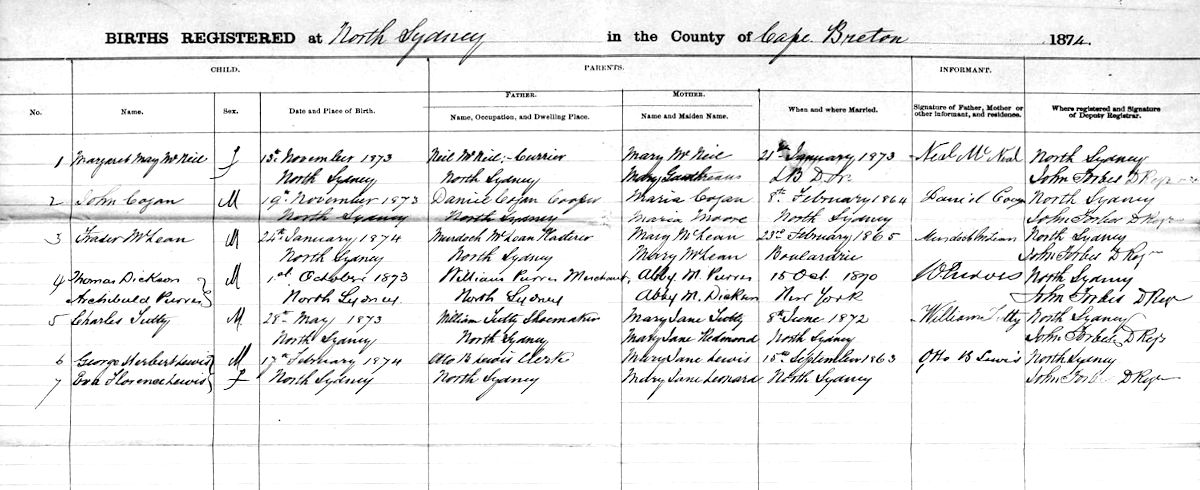 BIRTHS REGISTERED at North Sydney in the County of Cape Breton 1874.
CHILD. PARENTS. INFORMANT.
FATHER. MOTHER.
No. Name. Sex. Date and Place of Birth. Name, Occupation, and Dwelling Place. Name and Maiden Name. When and where Married. Signature of Father, Mother or other informant, and residence. Where registered and Signature of Deputy Registrar.
1 Margaret May McNeil F 13th November 1873 Neil McNeil, Currier Mary McNeil 21st January 1873 Neal McNeal North Sydney
North Sydney North Sydney Mary John Forbes D Regr
2 John Cogan M 19th November 1873 Daniel Cogan Cooper Maria Cogan 8th February 1864 Daniel North Sydney
North Sydney North Sydney Maria Moore North Sydney John Forbes D Regr
3 Fraser McLean M 24th January 1874 Murdoch McLean Mary McLean 23rd February 1865 Murdoch McLean North Sydney
North Sydney North Sydney Mary McLean Boulardrie John Forbes D Regr
4 Thomas Dickson M 1st October 1873 William Purves Merchant Abby M. Purves 15 Oct 1870 North Sydney
Archibald Purves North Sydney North Sydney Abby M. Dickson New York John Forbes D Regr
5 Charles Tutty M 28th May 1873 William Tutty Shoemaker Mary Jane Tutty 8th June 1872 William Tutty North Sydney
North Sydney North Sydney Mary Jane Redmond North Sydney John Forbes D Regr
6 George Herbert Lewis M 17th February 1874 Oto B Lewis Clerk Mary Jane Lewis 15th September 1863 Otto B Lewis North Sydney
7 Eva Florence Lewis F North Sydney North Sydney Mary Jane Leonard North Sydney John D Regr